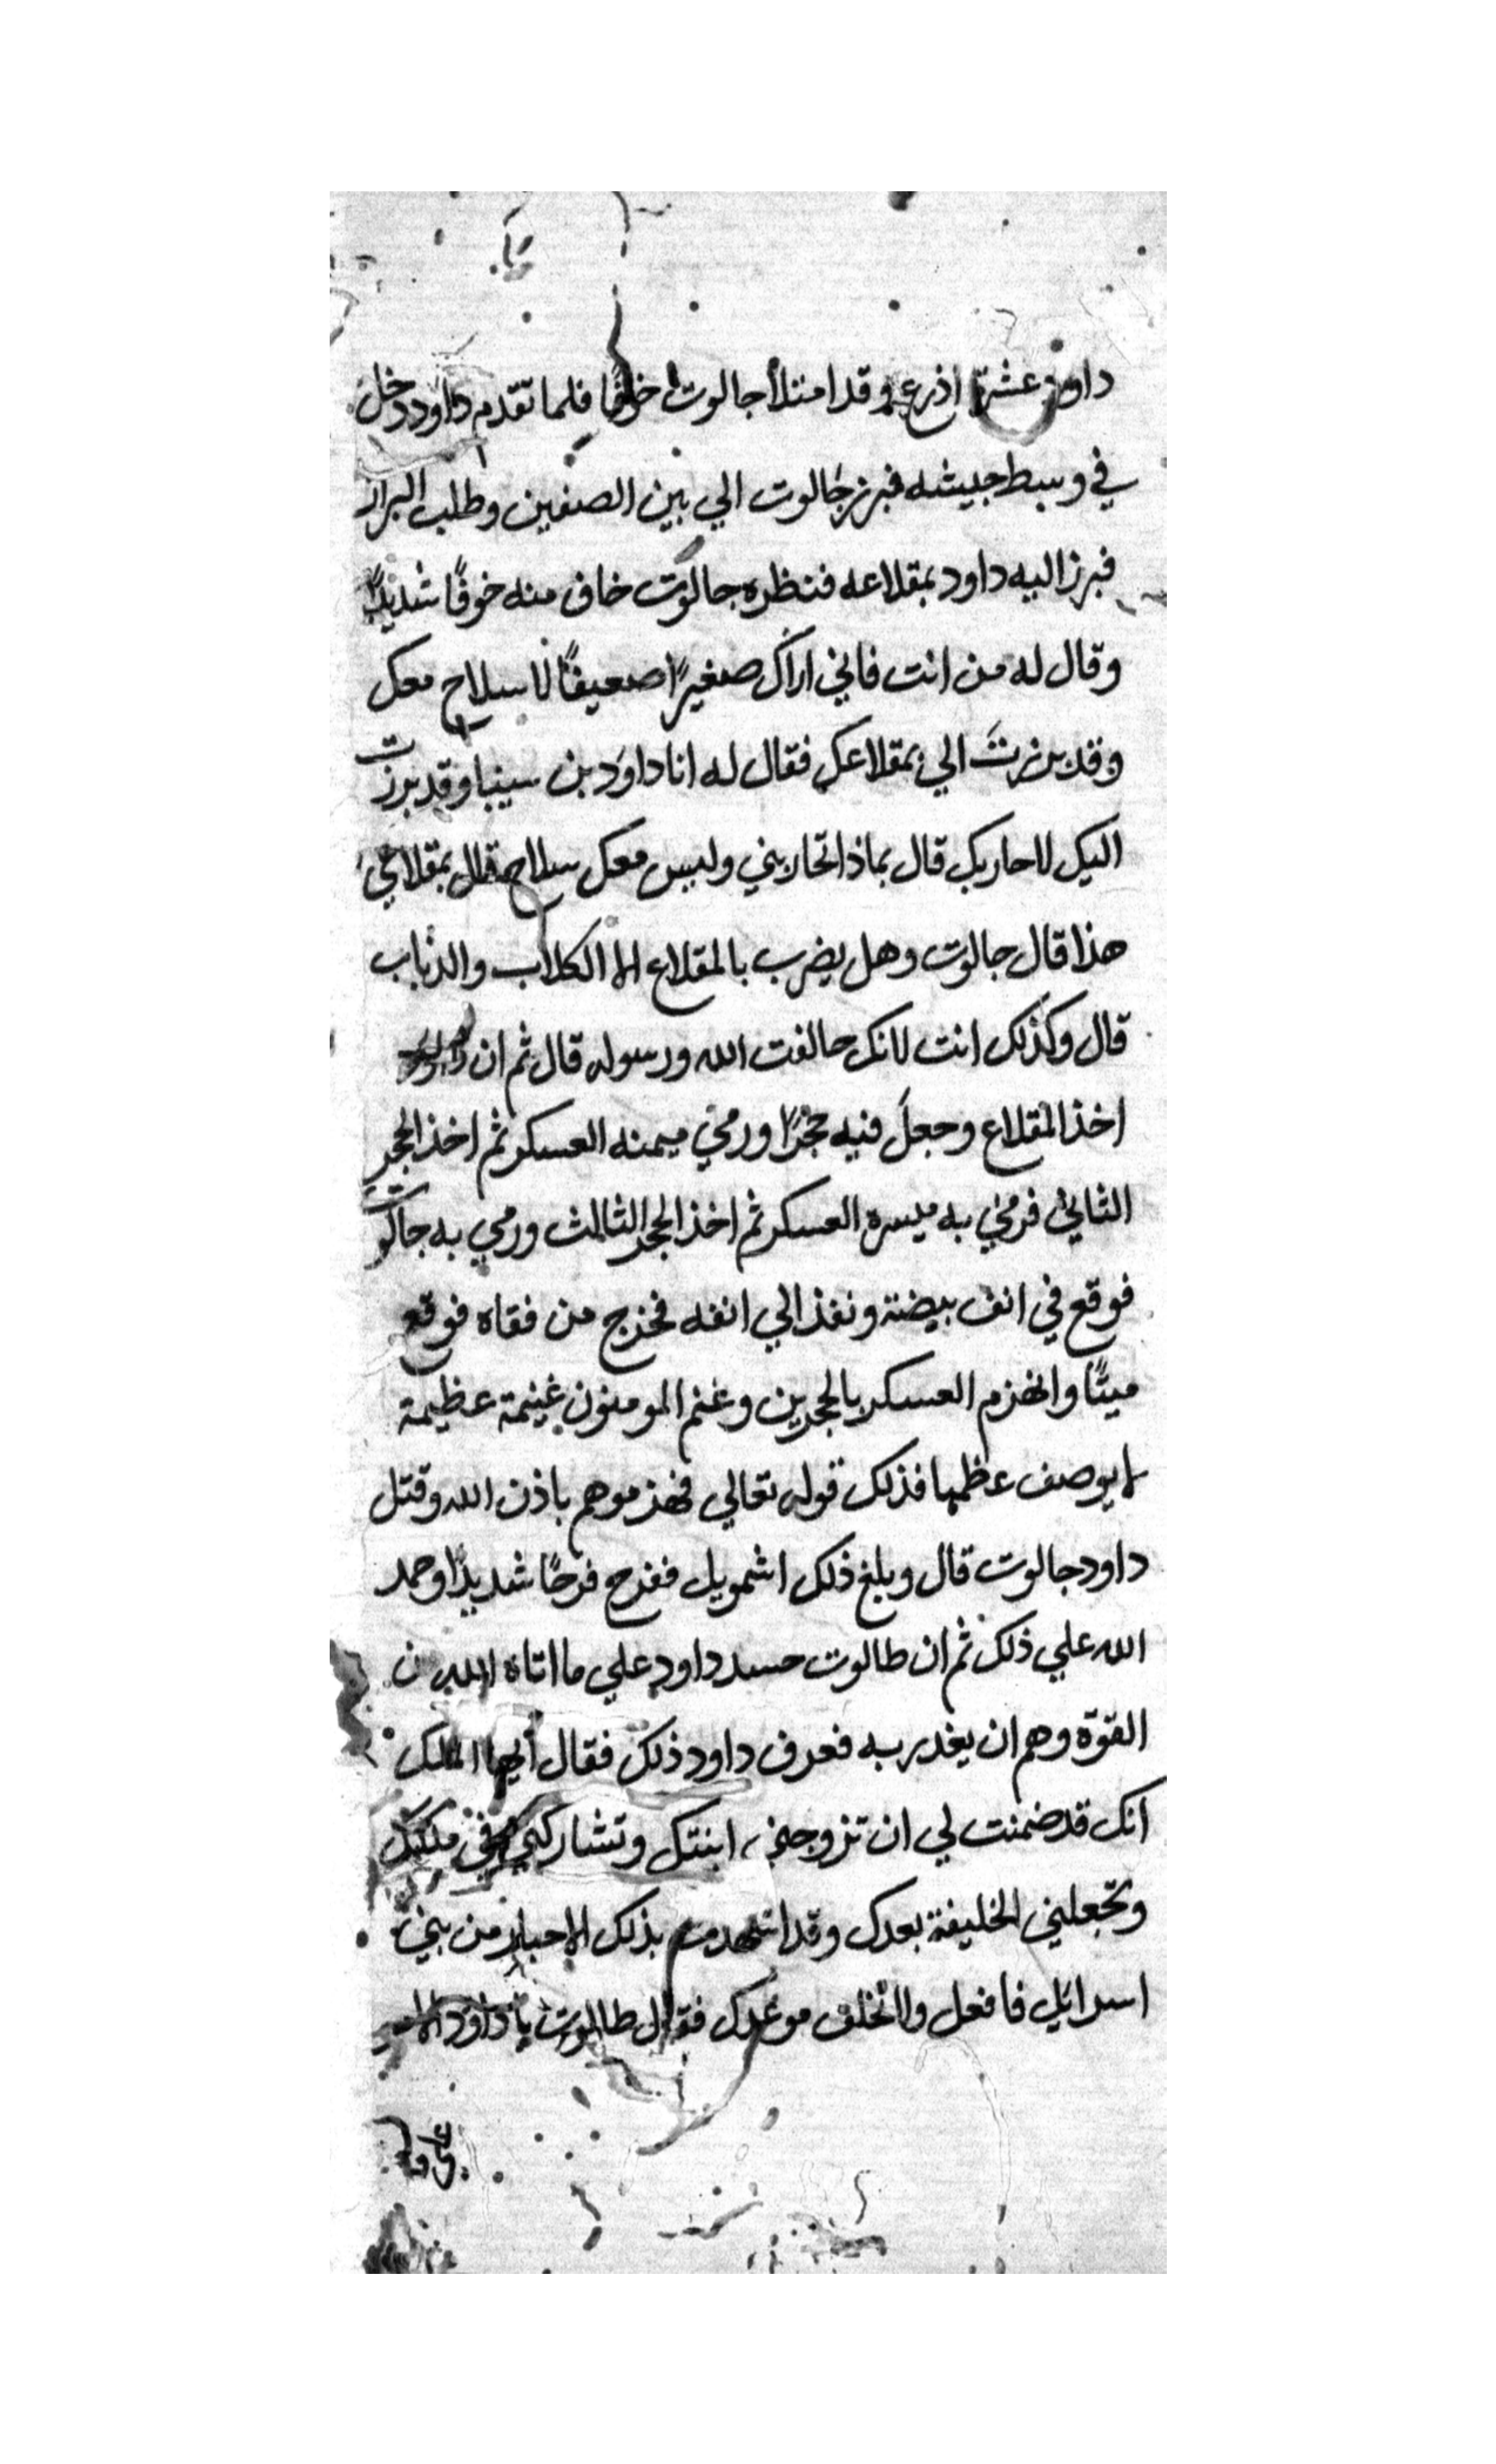 داود عشرة اذرع وقد امتلأ جالوت خوفا فلما تقدم داود دخل
في وسط جيشه فبرز جالوت الي بين الصفين وطلب البراز
فبرز اليه داود بمقلاعه فنظره جالوت خاف منه خوفًا شديدًا
وقال له من انت فاني اراك صغيرًا ضعيفًا لا سلاح معك
وقد برزت الي بمقلاعك فقال له انا داود بن سينيا وقد برزت
اليك لاحاربك قال بماذا تحاربني وليس معك سلاح قال بمقلاعي
هذا قال جالوت وهل يضرب بالمقلاع الا الكلاب والذياب
قال وكذلك انت لانك خالفت الله ورسوله قال ثم ان داود
اخذ المقلاع وجعل فيه حجرًا ورمي ميمنه العسكر ثم اخذ الحجر
الثاني فرمي به ميسره العسكر ثم اخذ الحجر الثالث ورمي به جالوت
فوقع في انف بيضته ونفذ الي انفه فخرج من فقاه فوقع
ميتًا وانهزم العسكر بالحجرين وغنم المومنون غنيمة عظيمة
لا يوصف عظمها فذلك قوله تعالي فهزموهم باذن الله وقتل
داود جالوت قال وبلغ ذلك اشمويل ففرح فرحًا شديدًا وحمد
الله علي ذلك ثم ان طالوت حسد داود علي ما اتاه الله من
القوة وهم ان يغدر به فعرف داود ذلك فقال أيها الملك
انك قد ضمنت لي ان تزوجني ابنتك وتشاركني في ملكك
وتجعلني الخليفة بعدك وقد اشهدت بذلك الاحبار من بني
اسرايل فافعل ولا تخلف موعدك فقال طالوت يا داود